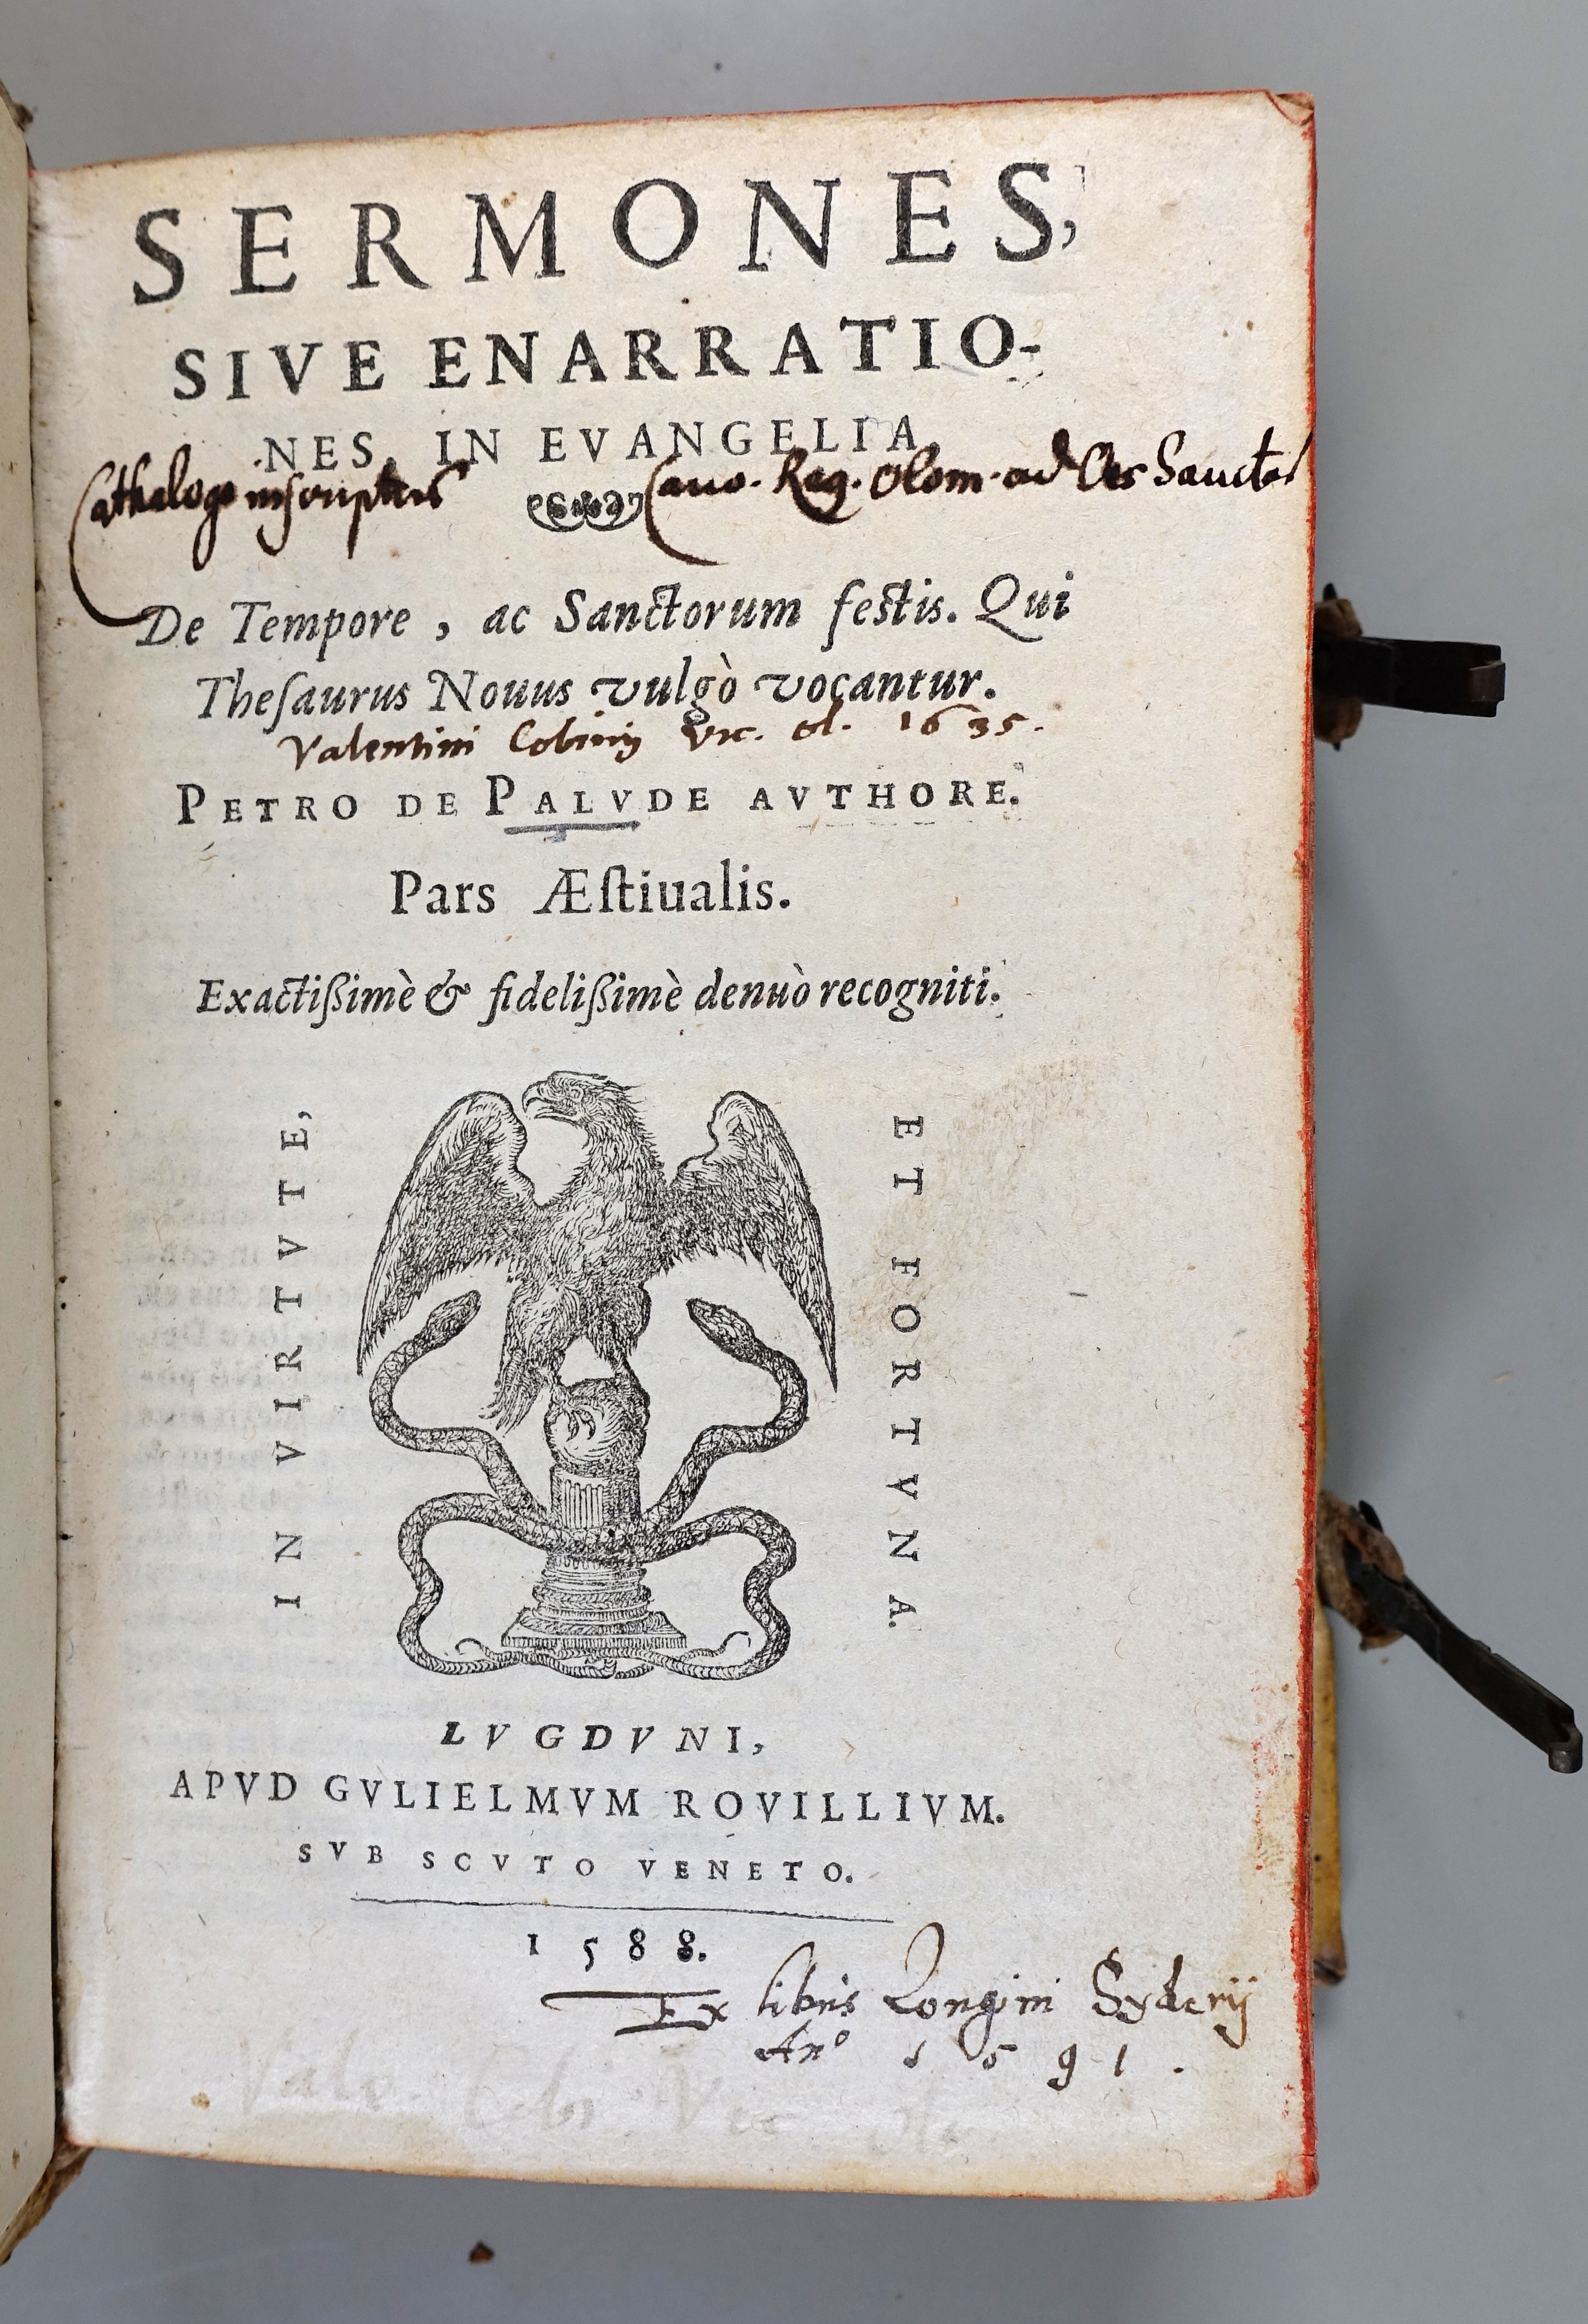 SERMONES,
SIVE ENARRATIO-
NES, IN EVANGELIA,
Cathalogo inscriptus Cano. Reg. Olom. ad Oes Sanctos
De Tempore, ac Sanctorum festis. Qui
Theſaurus Nouus vulgò vocantur.
Valentini 1635.
PETRO DE PALVDE AVTHORE.
Pars Æſtiualis.
Exactißimè & fidelißimè denuò recogniti.
IN VIRTVTE,
ET FORTVNA.
LVGDVNI,
APVD GVLIELMVM ROVILLIVM.
SVB SCVTO VENETO.
1588.
Ex libris Longini Syderij
Anº 1591.